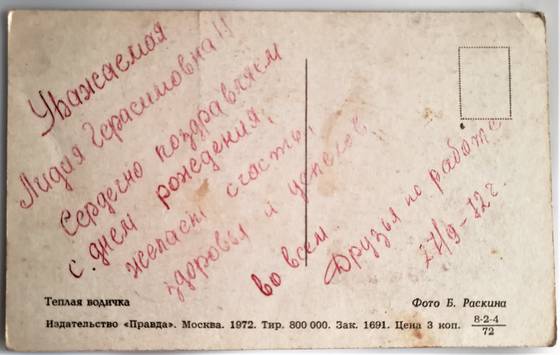 Уважаемая
Лидия Герасимовна!!
Сердечно поздравляем
с днём рождения,
желаем счастья,
здоровья и успехов
во всём.
Друзья по работе
27/9-72г.
Теплая водичка
Фото Б. Раскина
Издательство «Правда». Москва. 1972. Тир. 800 000. Зак. 1691. Цена 3 коп. 8-2-4/72